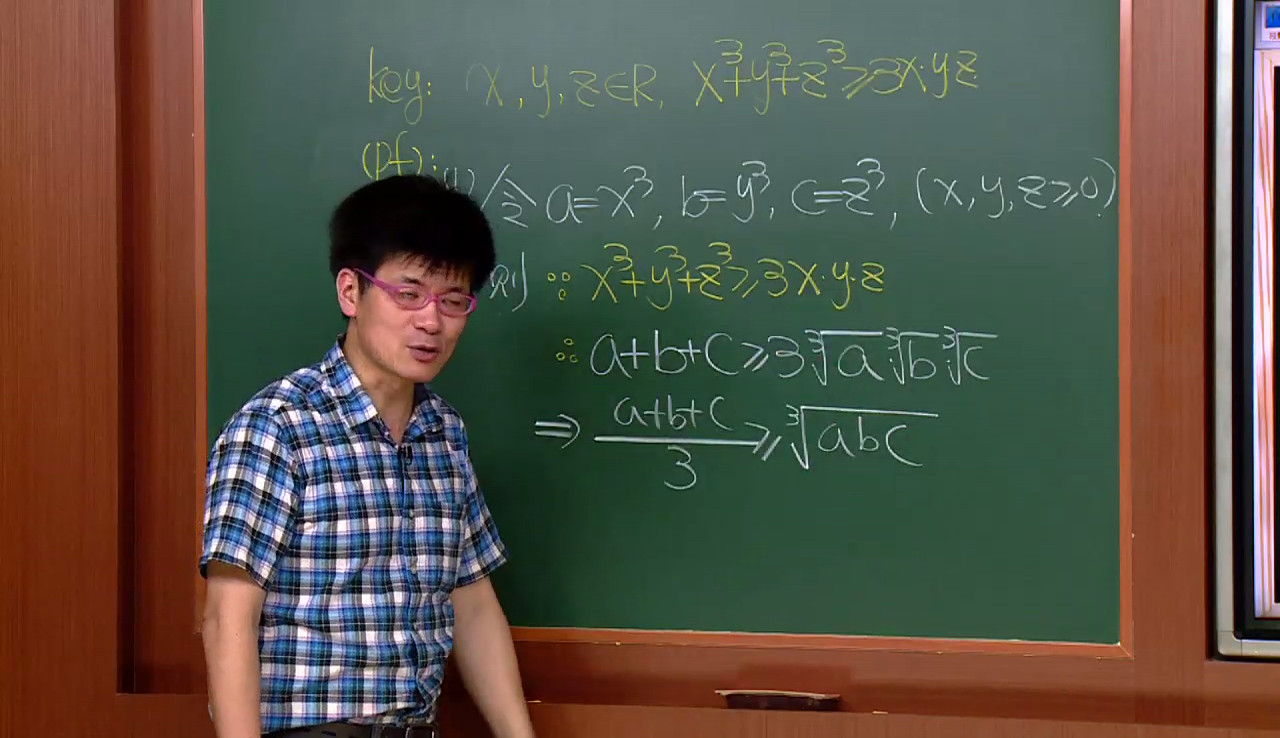 key: x, y, z∈R, x³+y³+z³⩾3x·y·z
(pf):(1) 令 a=x³, b=y³, c=z³, (x, y, z⩾0)
則 ∵ x³+y³+z³⩾3x·y·z
∴ a+b+c⩾3∛a·∛b·∛c
⇒ (a+b+c)/3 ⩾ ∛(abc)